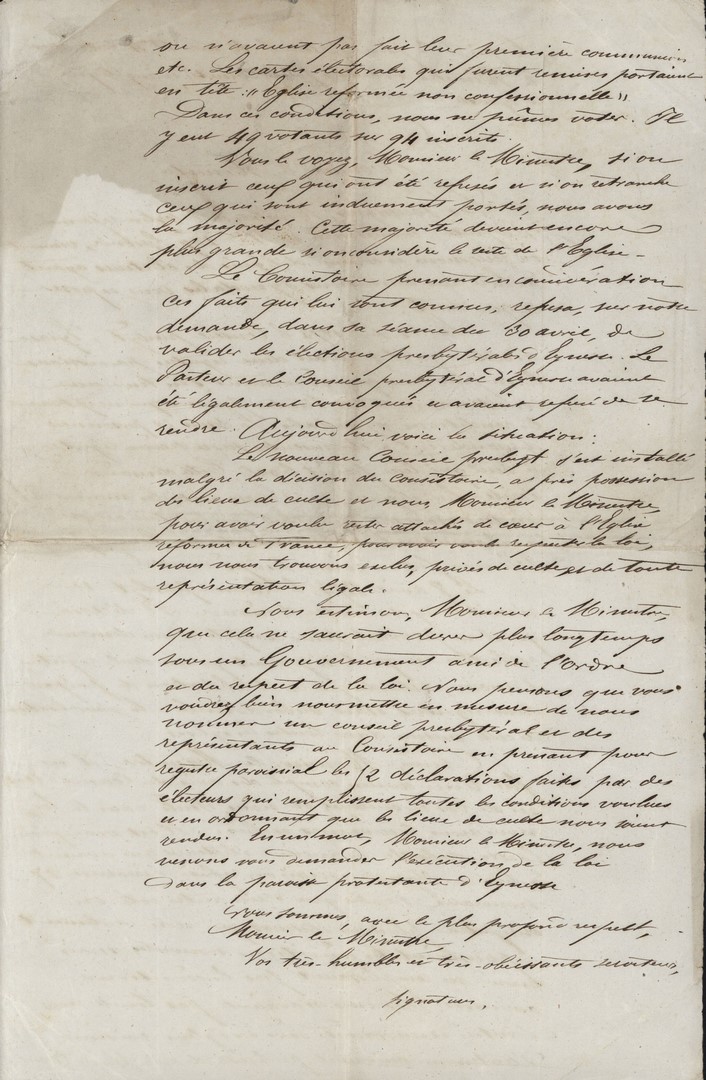 ou n'avaient pas fait leur première communion
etc. Les cartes électorales qui furent remises portaient
en tête : "Eglise reformée non confessionnelle"
Dans ces conditions, nous ne pûmes voter. Il
y eut 49 votants sur 94 inscrits.
Vous le voyez, Monsieur le Ministre, si on
inscrit ceux qui ont été refusés et si on retranche
ceux qui sont induement portés, nous avons
la majorité. Cette majorité devient encore
plus grande si on considère le reste de l'Eglise -
Le Consistoire prenant en considération
ces faits qui lui sont connus, refusa, sur notre
demande, dans sa séance du 30 avril, de
valider les élections presbytérales d'Eynesse. Le
Pasteur et le Conseil presbytéral d'Eynesse avaient
été légalement convoqués et avaient refusé de se
rendre. Aujourd'hui, voici la situation :
Le nouveau Conseil presbyt s'est installé
malgré la décision du Consistoire, a pris possession
des lieux de culte et nous, Monsieur le Ministre,
pour avoir voulu rester attachés de cœur à l'Eglise
reformée de France, pour avoir voulu respecter la loi,
nous nous trouvons exclus, privés de culte et de toute
représentation légale.
Nous estimons, Monsieur le Ministre,
que cela ne saurait durer plus longtemps
sous un Gouvernement ami de l'Ordre
et du respect de la loi. Nous pensons que vous
voudrez bien nous mettre en mesure de nous
nommer un conseil presbytéral et des
représentants au Consistoire en prenant pour
registre paroissial les 52 déclarations faites par des
électeurs qui remplissent toutes les conditions voulues
et en ordonnant que les lieux de culte nous soient
rendus. En un mot, Monsieur le Ministre, nous
venons vous demander l'exécution de la loi
dans la paroisse protestante d'Eynesse
Nous sommes, avec le plus profond respect,
Monsieur le Ministre,
Vos très-humbles et très-obéissants serviteurs,
signatures.